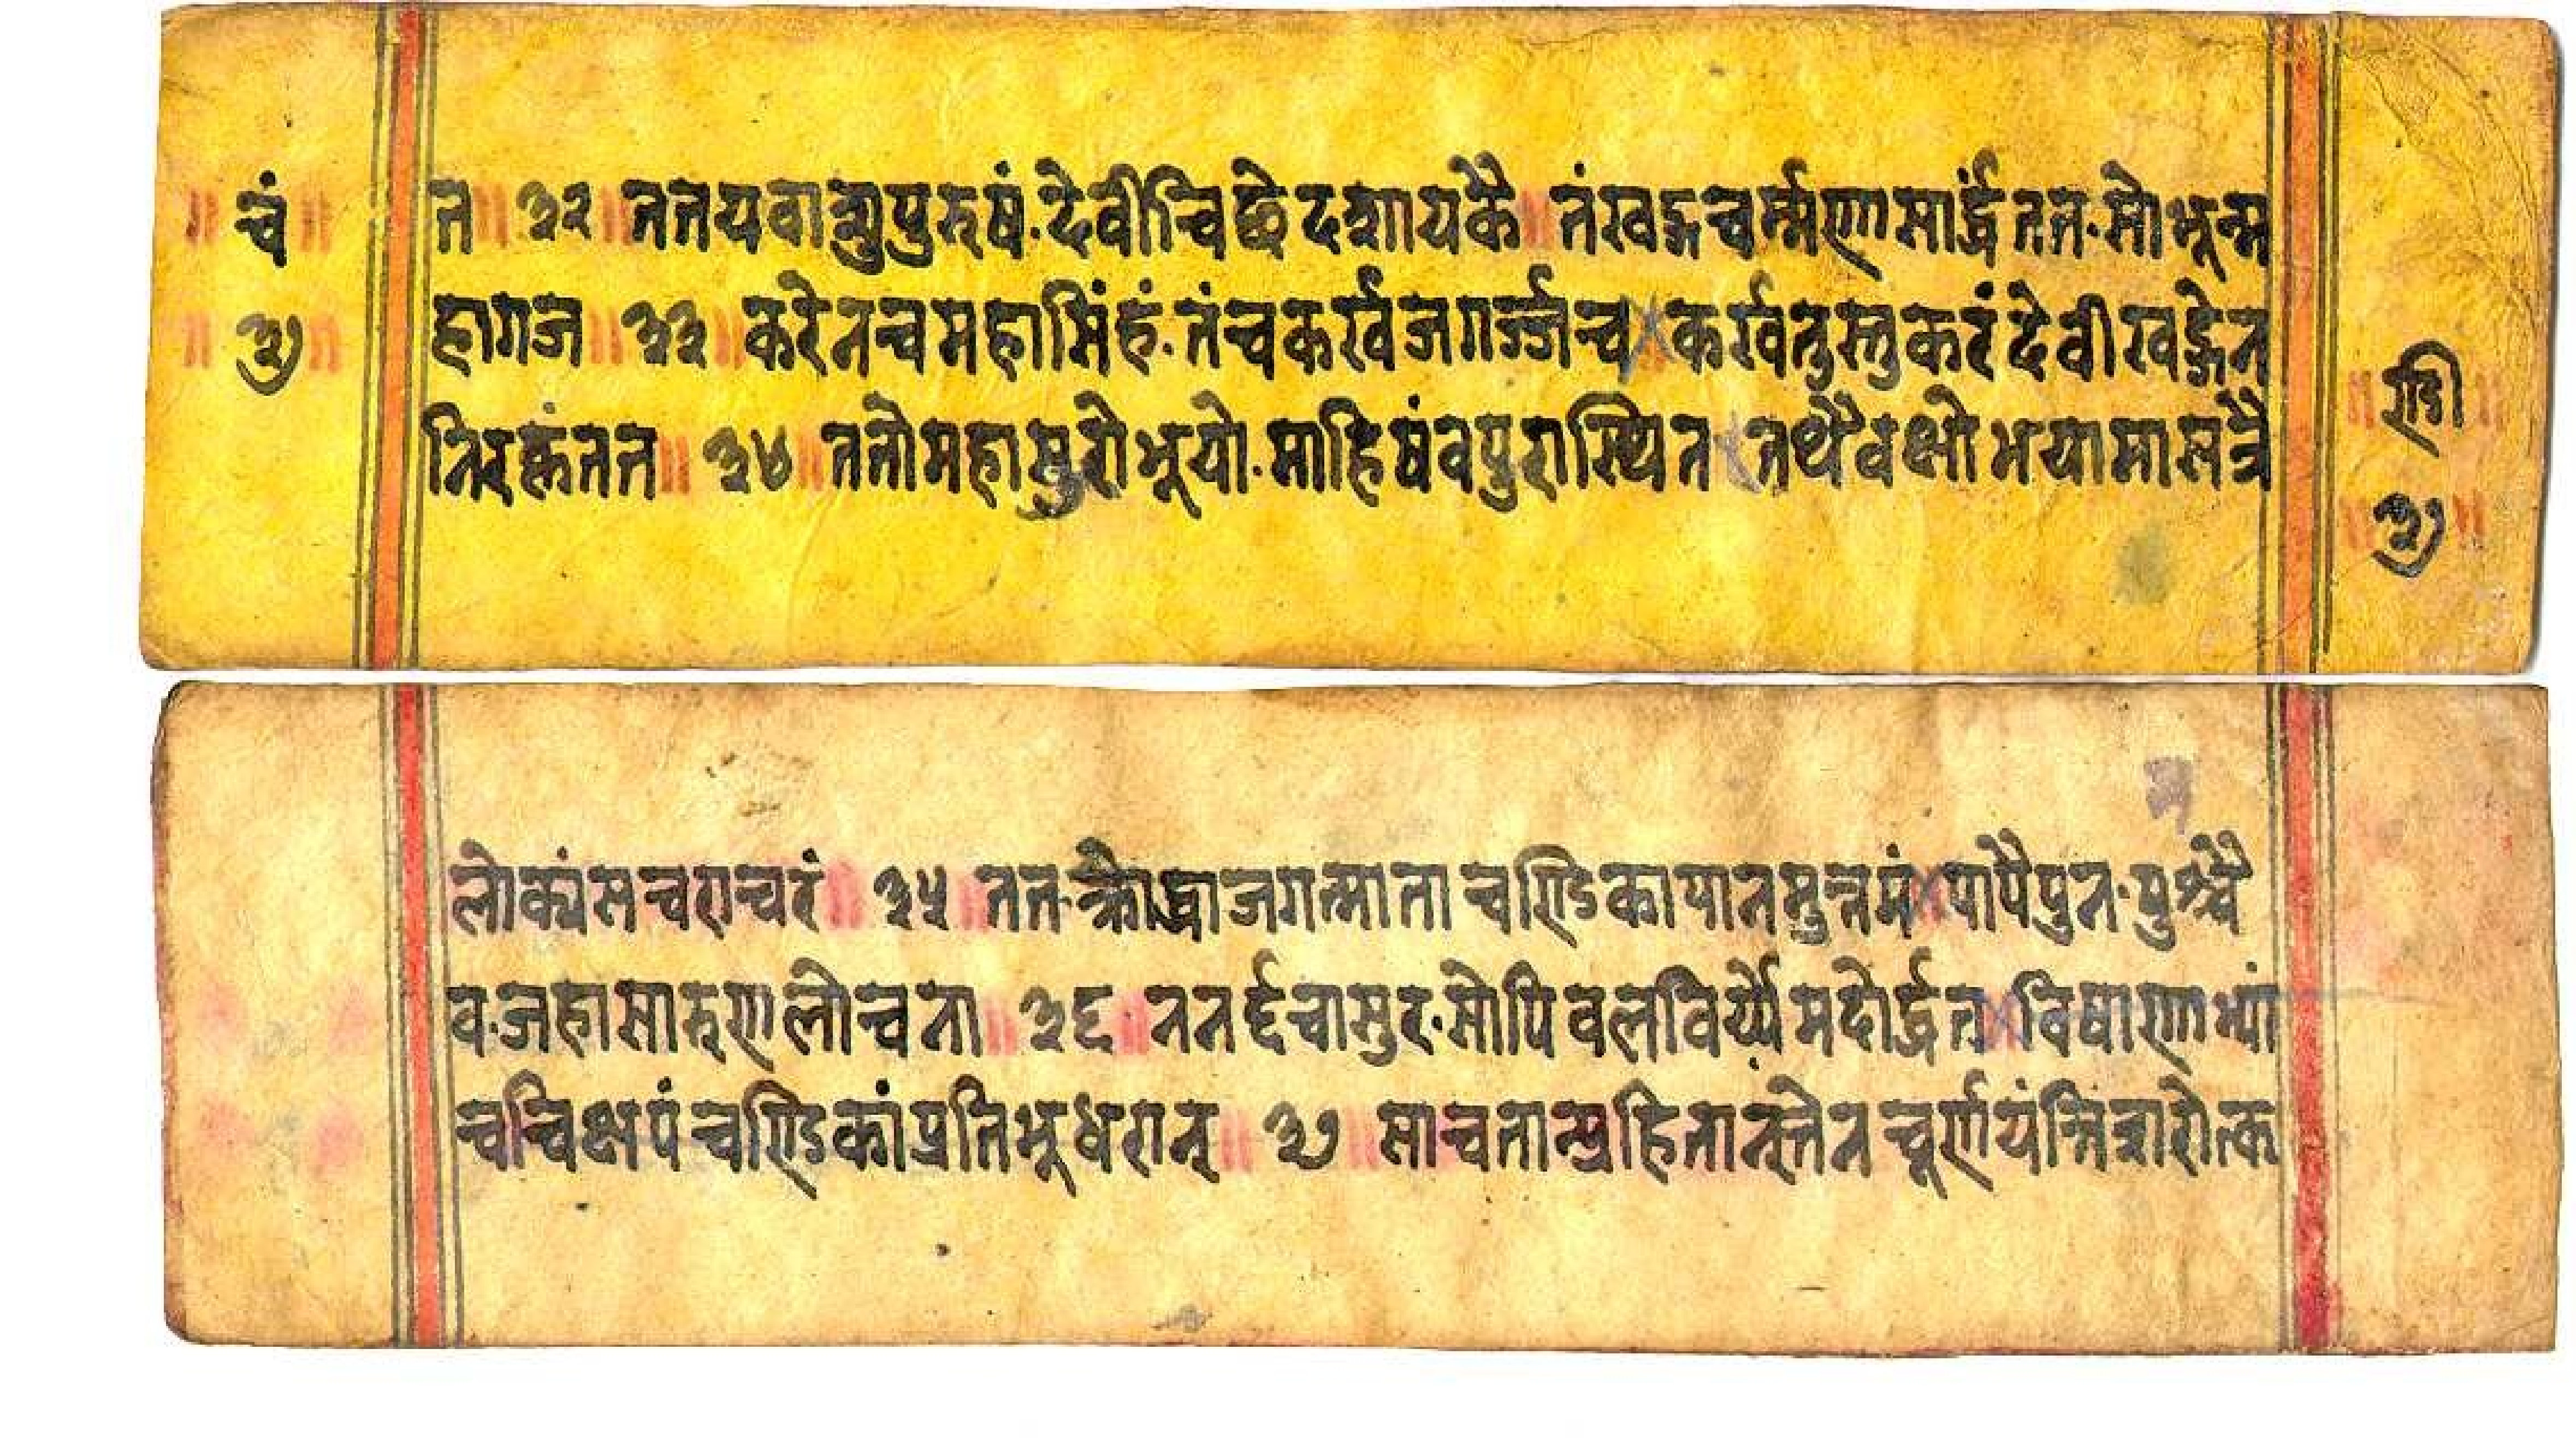 ॥ चं ॥
॥ ३७ ॥
त ॥ ३२ ॥ ततयवाश्रुपुरुषं·देवीचिछेदशायकै ॥ तंखड्गचर्म्मणासार्द्धंतत·सोभून्म
हागज ॥ ३३ ॥ करेनचमहासिंहं·तंचकर्खजगर्ज्जच कर्खतुस्तुकरंदेवीखड्गेन
निरकृंतत ॥ ३४ ॥ ततोमहासुरोभूयो·माहिषंवपुरास्थित तथैवक्षोभयामासत्रै
॥ ण्डी ॥
॥ ३७ ॥
लोक्यंसचराचरं ॥ ३५ ॥ तत·क्रोद्धाजगन्माता चण्डिकापानमुत्तमं पापैपुन·पुश्चै
व·जहासारुणलोचना ॥ ३६ ॥ ननर्द्दचासुर·सोपि वलविर्य्यैमदोर्द्धत विषाणाभ्यां
चचिक्षपं चण्डिकांप्रतिभूधरान् ॥ ३७ ॥ साचतान्प्रहितान्स्तेन चूर्णयंन्तिशरोत्क